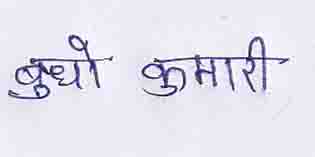 बुधो कुमारी